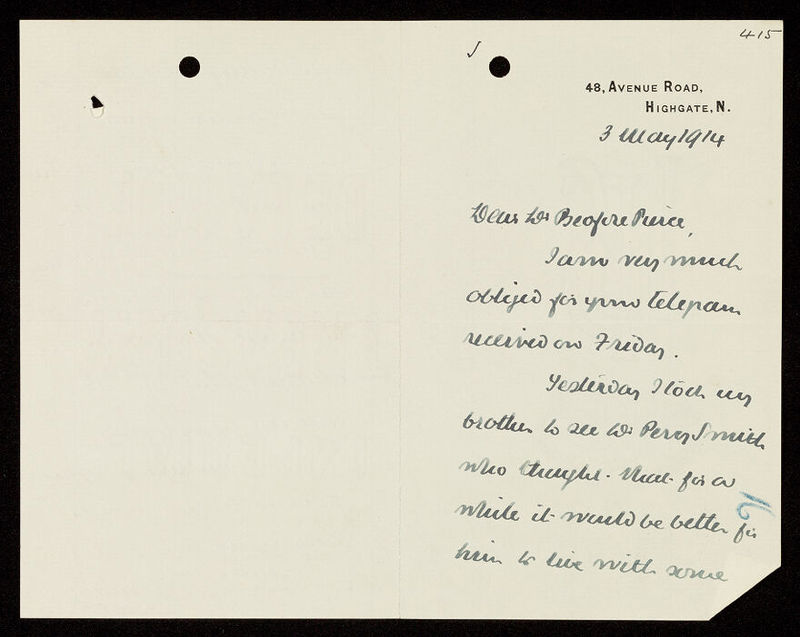 415
48, AVENUE ROAD,
HIGHGATE, N.
3 May 1914
Dear Dr Pierce,
I am very much
obliged for your telegram
received on Friday.
Yesterday I took my
brother to see Dr Percy Smith
who thought that for a
while it would be better for
him to live with some